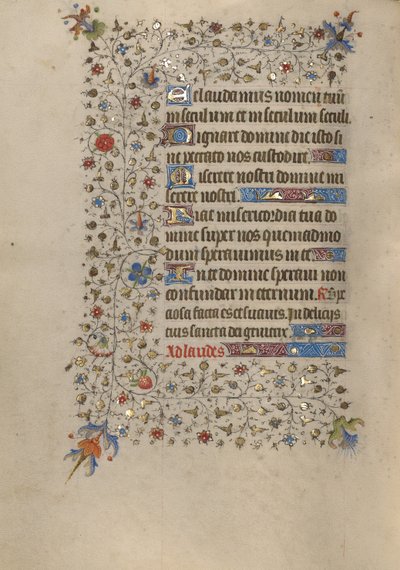 Et laudamus nomen tuū
in seculum et in seculum seculi.
Dignare domine die isto si
ne peccato nos custodire.
Miserere nostri domine mi
serere nostri.
Fiat misericordia tua do
mine super nos quemadmo
dum sperauimus in te.
In te domine speraui non
confundar in eternum.
aosa facta es et suauis. In delicijs
tuis sancta dei genitrix.
Ad laudes